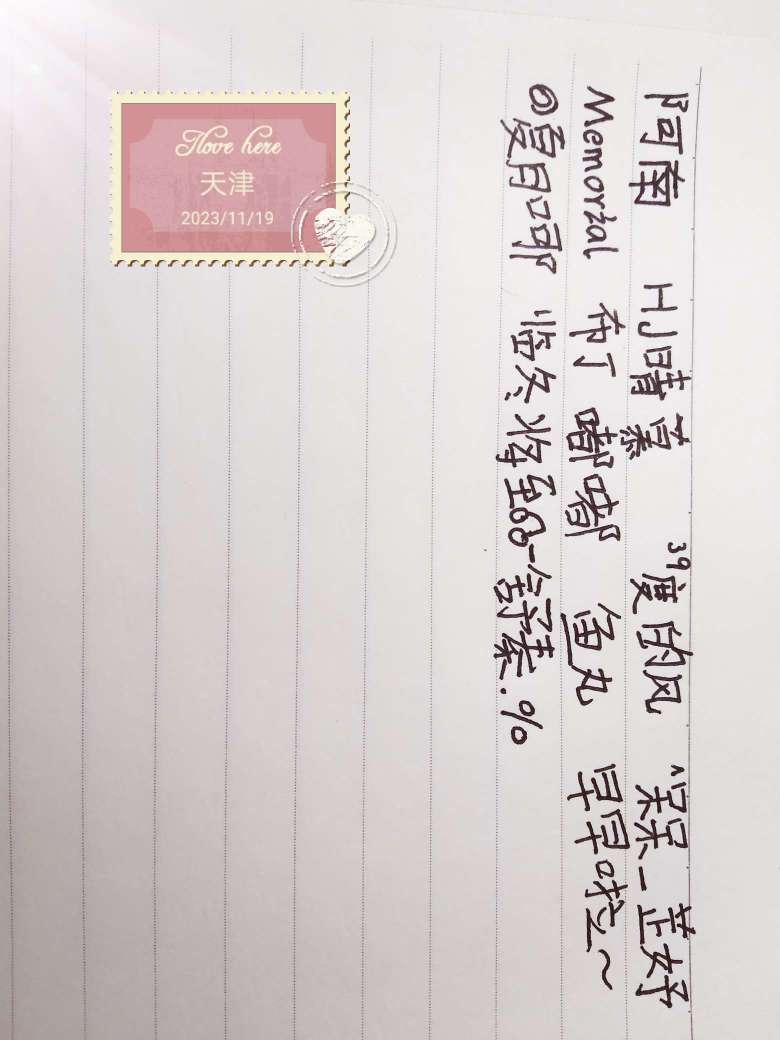 I love here
天津
2023/11/19
阿南 HJ晴蒙 39度的风 ^呆呆_芷妤
Memorial 布丁 嘟嘟 鱼丸 早早啦~
◎夏日口耶 临冬将至 一舒蓁.%